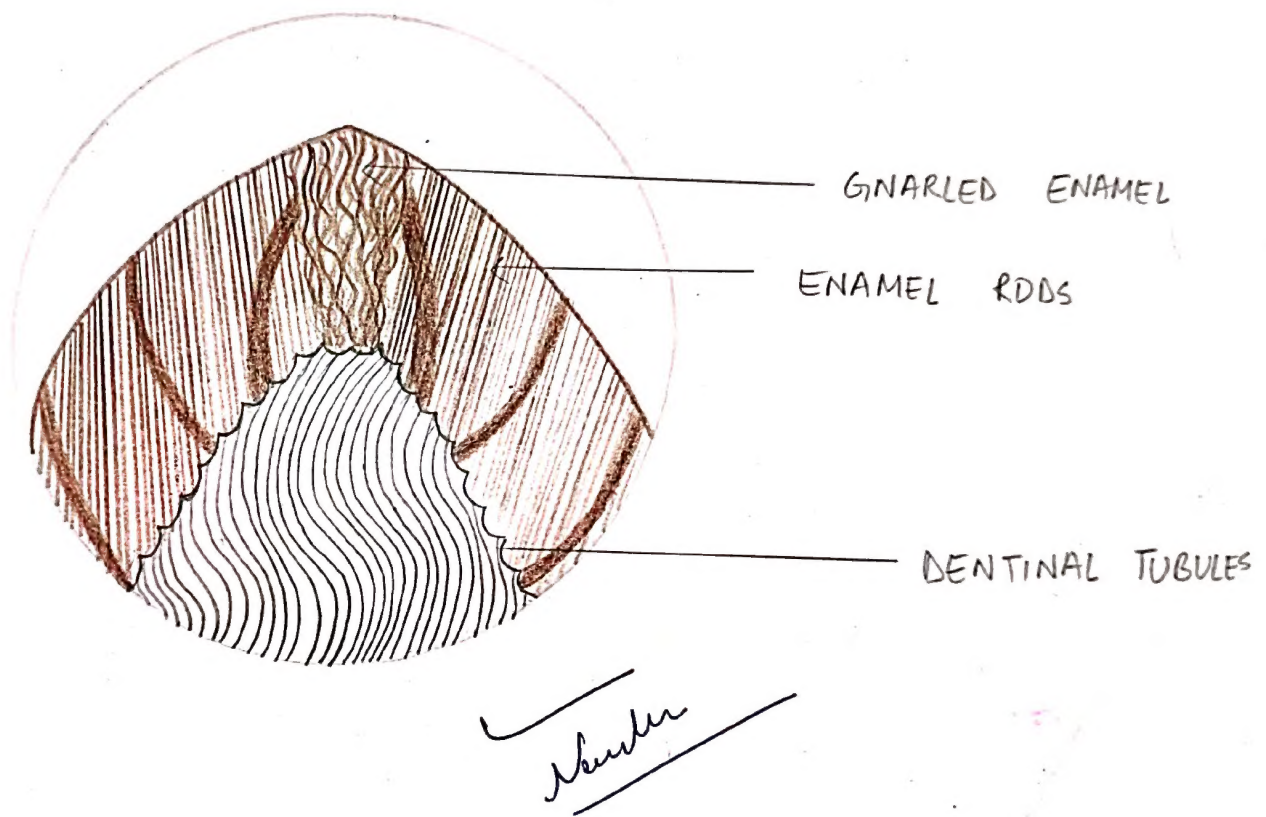 GNARLED ENAMEL
ENAMEL RODS
DENTINAL TUBULES